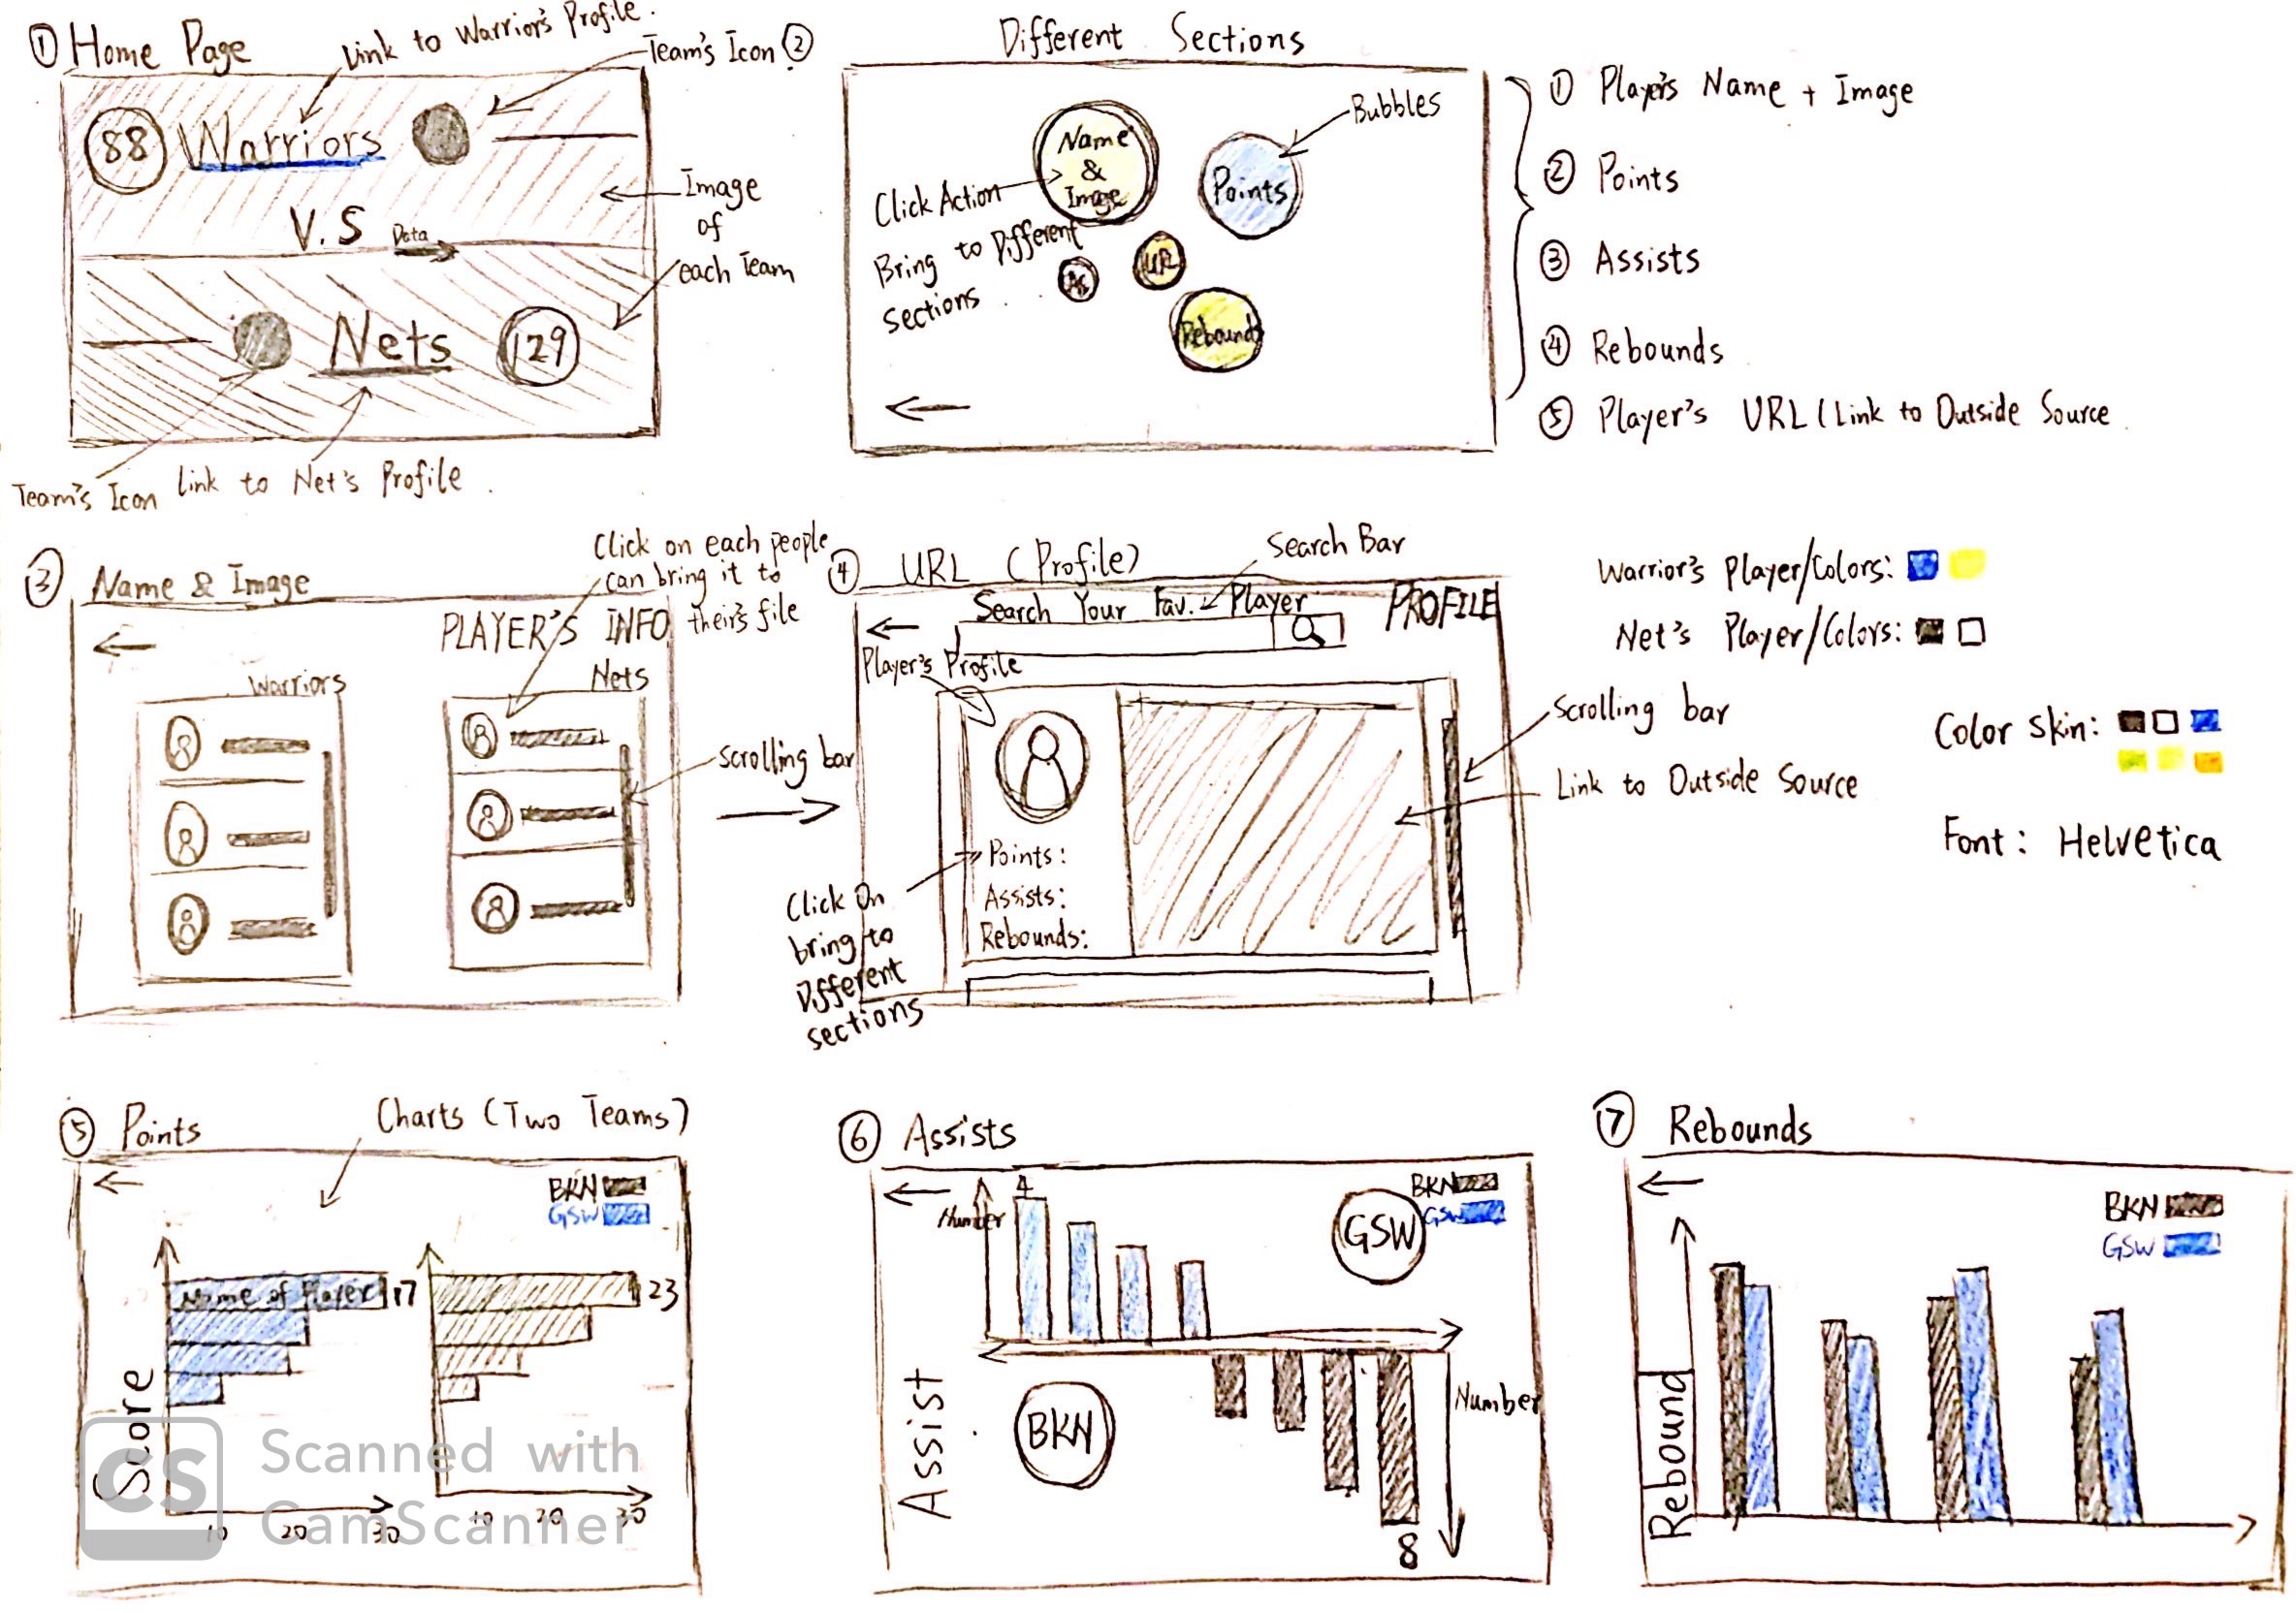 ① Home Page
Link to Warrior's Profile.
Team's Icon
88 Warriors
V.S
Data
Nets 129
Image
of
each Team
Team's Icon
Link to Net's Profile.
②
Different Sections
Name
&
Image
Points
Bubbles
Click Action
Bring to Different
sections.
As
URL
Rebounds
① Player's Name + Image
② Points
③ Assists
④ Rebounds
⑤ Player's URL (Link to Outside Source
③ Name & Image
Click on each people
can bring it to
their's file
PLAYER'S INFO
Warriors
Nets
Scrolling bar
④ URL (Profile)
Search Bar
Search Your Fav. Player
PROFILE
Player's Profile
Points:
Assists:
Rebounds:
Click On
bring to
Different
sections
Scrolling bar
Link to Outside Source
Warrior's Player/Colors:
Net's Player/Colors:
Color Skin:
Font: Helvetica
⑤ Points
Charts (Two Teams)
BKN
GSW
Name of Player 17
23
Score
10 20 30
10 20 30
⑥ Assists
Number
4
BKN
GSW
GSW
BKN
Assist
Number
8
⑦ Rebounds
BKN
GSW
Rebound
CS
Scanned with
CamScanner